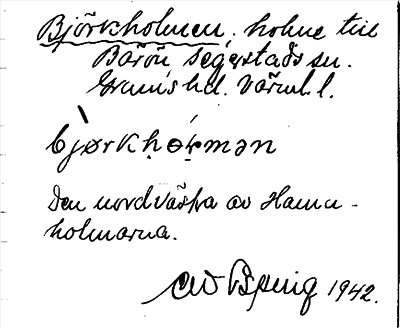 Björkholmen, holme till
Bärön Segerstads sn.
Grums hd. Värml. l.
bjørkhɷɽmən
Den nordvästra av Hamn-
holmarna.
1942.